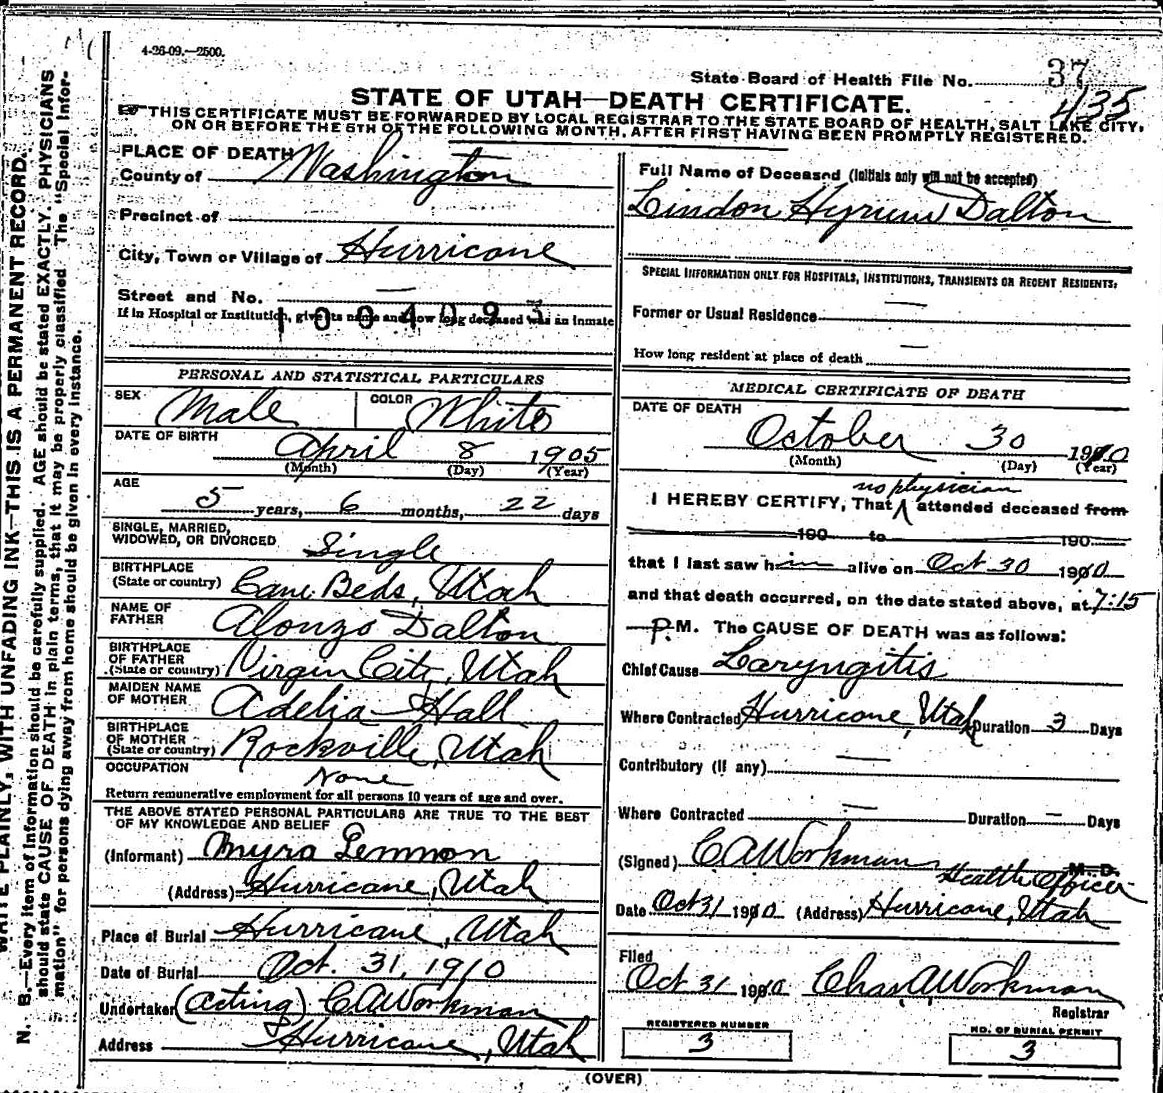 4-26-09.—2500.
State Board of Health File No. 37
435
STATE OF UTAH—DEATH CERTIFICATE.
THIS CERTIFICATE MUST BE FORWARDED BY LOCAL REGISTRAR TO THE STATE BOARD OF HEALTH, SALT LAKE CITY,
ON OR BEFORE THE 5TH OF THE FOLLOWING MONTH, AFTER FIRST HAVING BEEN PROMPTLY REGISTERED.
PLACE OF DEATH
County of Washington
Precinct of
City, Town or Village of Hurricane
Street and No. —
If in Hospital or Institution, give its name and how long deceased was an inmate
1004093
PERSONAL AND STATISTICAL PARTICULARS
SEX Male COLOR White
DATE OF BIRTH April 8 1905
(Month) (Day) (Year)
AGE
5 years, 6 months, 22 days
SINGLE, MARRIED,
WIDOWED, OR DIVORCED Single
BIRTHPLACE
(State or country) Cane Beds, Utah
NAME OF
FATHER Alonzo Dalton
BIRTHPLACE
OF FATHER
(State or country) Virgin City, Utah
MAIDEN NAME
OF MOTHER Adelia Hall
BIRTHPLACE
OF MOTHER
(State or country) Rockville, Utah
OCCUPATION None
Return remunerative employment for all persons 10 years of age and over.
THE ABOVE STATED PERSONAL PARTICULARS ARE TRUE TO THE BEST
OF MY KNOWLEDGE AND BELIEF
(Informant) Myra Lemmon
(Address) Hurricane, Utah
Place of Burial Hurricane, Utah
Date of Burial Oct. 31, 1910
Undertaker (acting) C A Workman
Address Hurricane, Utah
Full Name of Deceased (Initials only will not be accepted)
Lindon Hyrum Dalton
SPECIAL INFORMATION ONLY FOR HOSPITALS, INSTITUTIONS, TRANSIENTS OR RECENT RESIDENTS.
Former or Usual Residence —
How long resident at place of death —
MEDICAL CERTIFICATE OF DEATH
DATE OF DEATH
October 30 1910
(Month) (Day) (Year)
no physician
I HEREBY CERTIFY, That attended deceased from
190 to 190
that I last saw him alive on Oct 30 1910
and that death occurred, on the date stated above, at 7:15
P.M. The CAUSE OF DEATH was as follows:
Chief Cause Laryngitis
Where Contracted Hurricane, Utah Duration 3 Days
Contributory (if any) —
Where Contracted — Duration — Days
(Signed) C A Workman M. D.
Health Officer
Date Oct 31 1910 (Address) Hurricane, Utah
Filed
Oct 31 1910 Chas A Workman
Registrar
REGISTERED NUMBER
3
NO. OF BURIAL PERMIT
3
(OVER)
WRITE PLAINLY, WITH UNFADING INK—THIS IS A PERMANENT RECORD.
N. B.—Every item of information should be carefully supplied. AGE should be stated EXACTLY. PHYSICIANS
should state CAUSE OF DEATH in plain terms, that it may be properly classified. The "Special Infor-
mation" for persons dying away from home should be given in every instance.